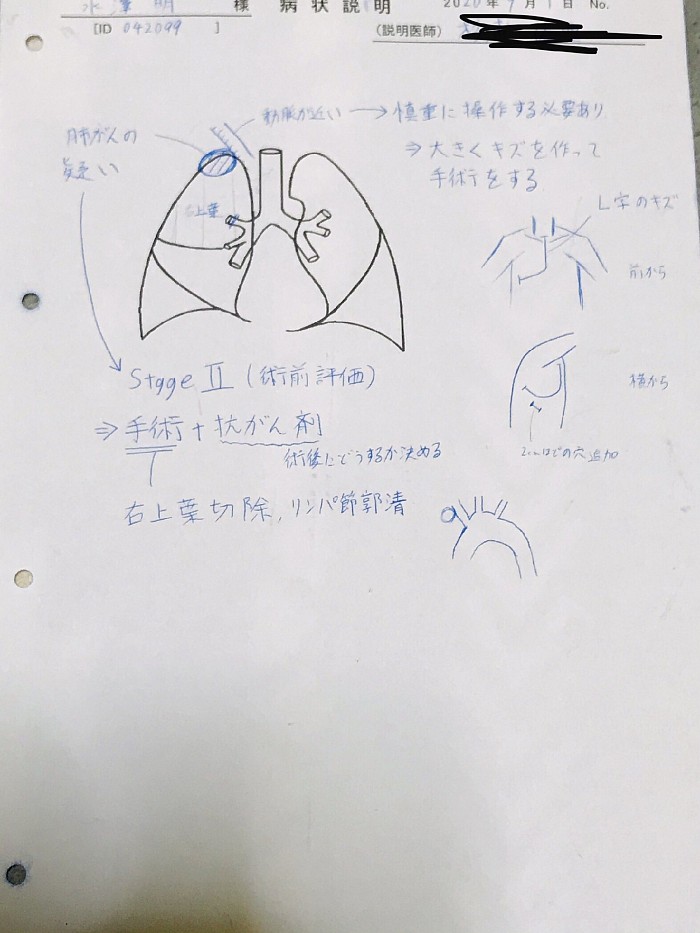 水澤 明 様 病状説明 2020年9月1日 No.
[ID 042099 ] (説明医師)
動脈が近い → 慎重に操作する必要あり
⇒ 大きくキズを作って
手術をする
肺がんの
疑い
右上葉
L字のキズ
前から
横から
2cmほどの穴追加
Stage Ⅱ (術前評価)
⇒ 手術 + 抗がん剤
術後にどうするか決める
右上葉切除, リンパ節郭清